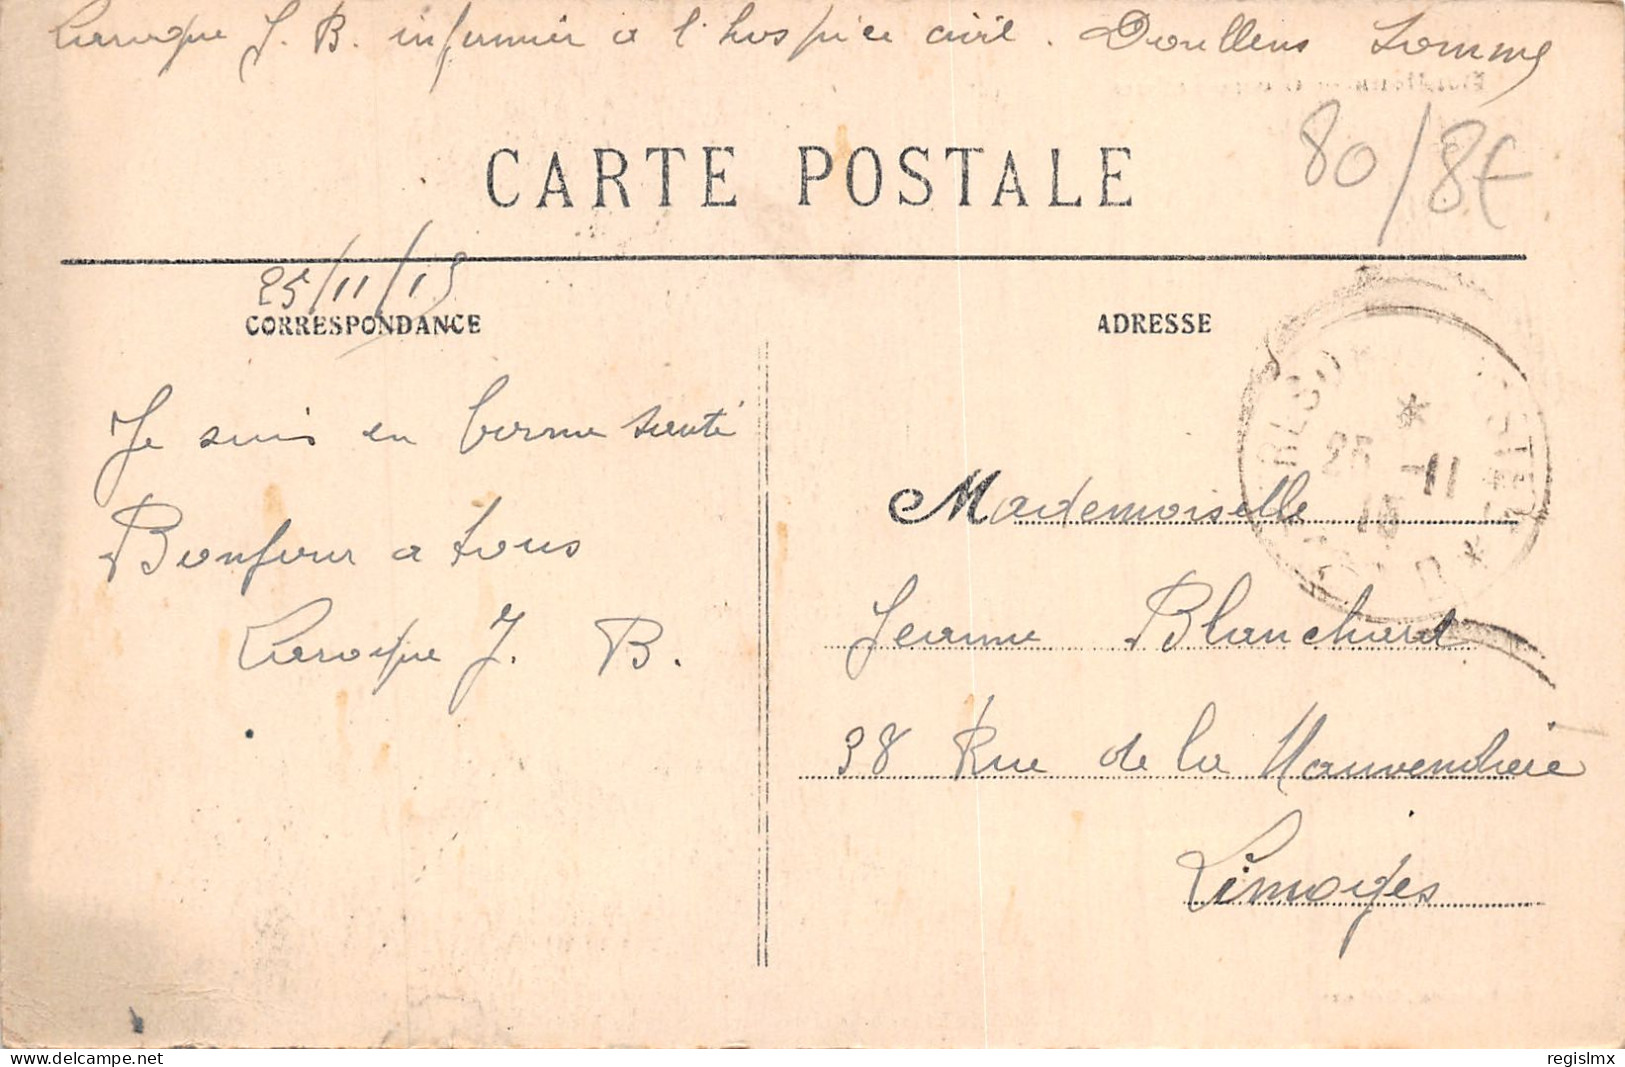 Laroque J. B. infirmier a l'hospice civil. Doullens Somme
80/8€
CARTE POSTALE
25/11/15
CORRESPONDANCE
ADRESSE
Je suis en bonne santé
Bonjour a tous
Laroque J. B.
Mademoiselle
Jeanne Blanchard
98 Rue de la Mauvendière
Limoges
25 -11
15
delcampe.net
regislmx